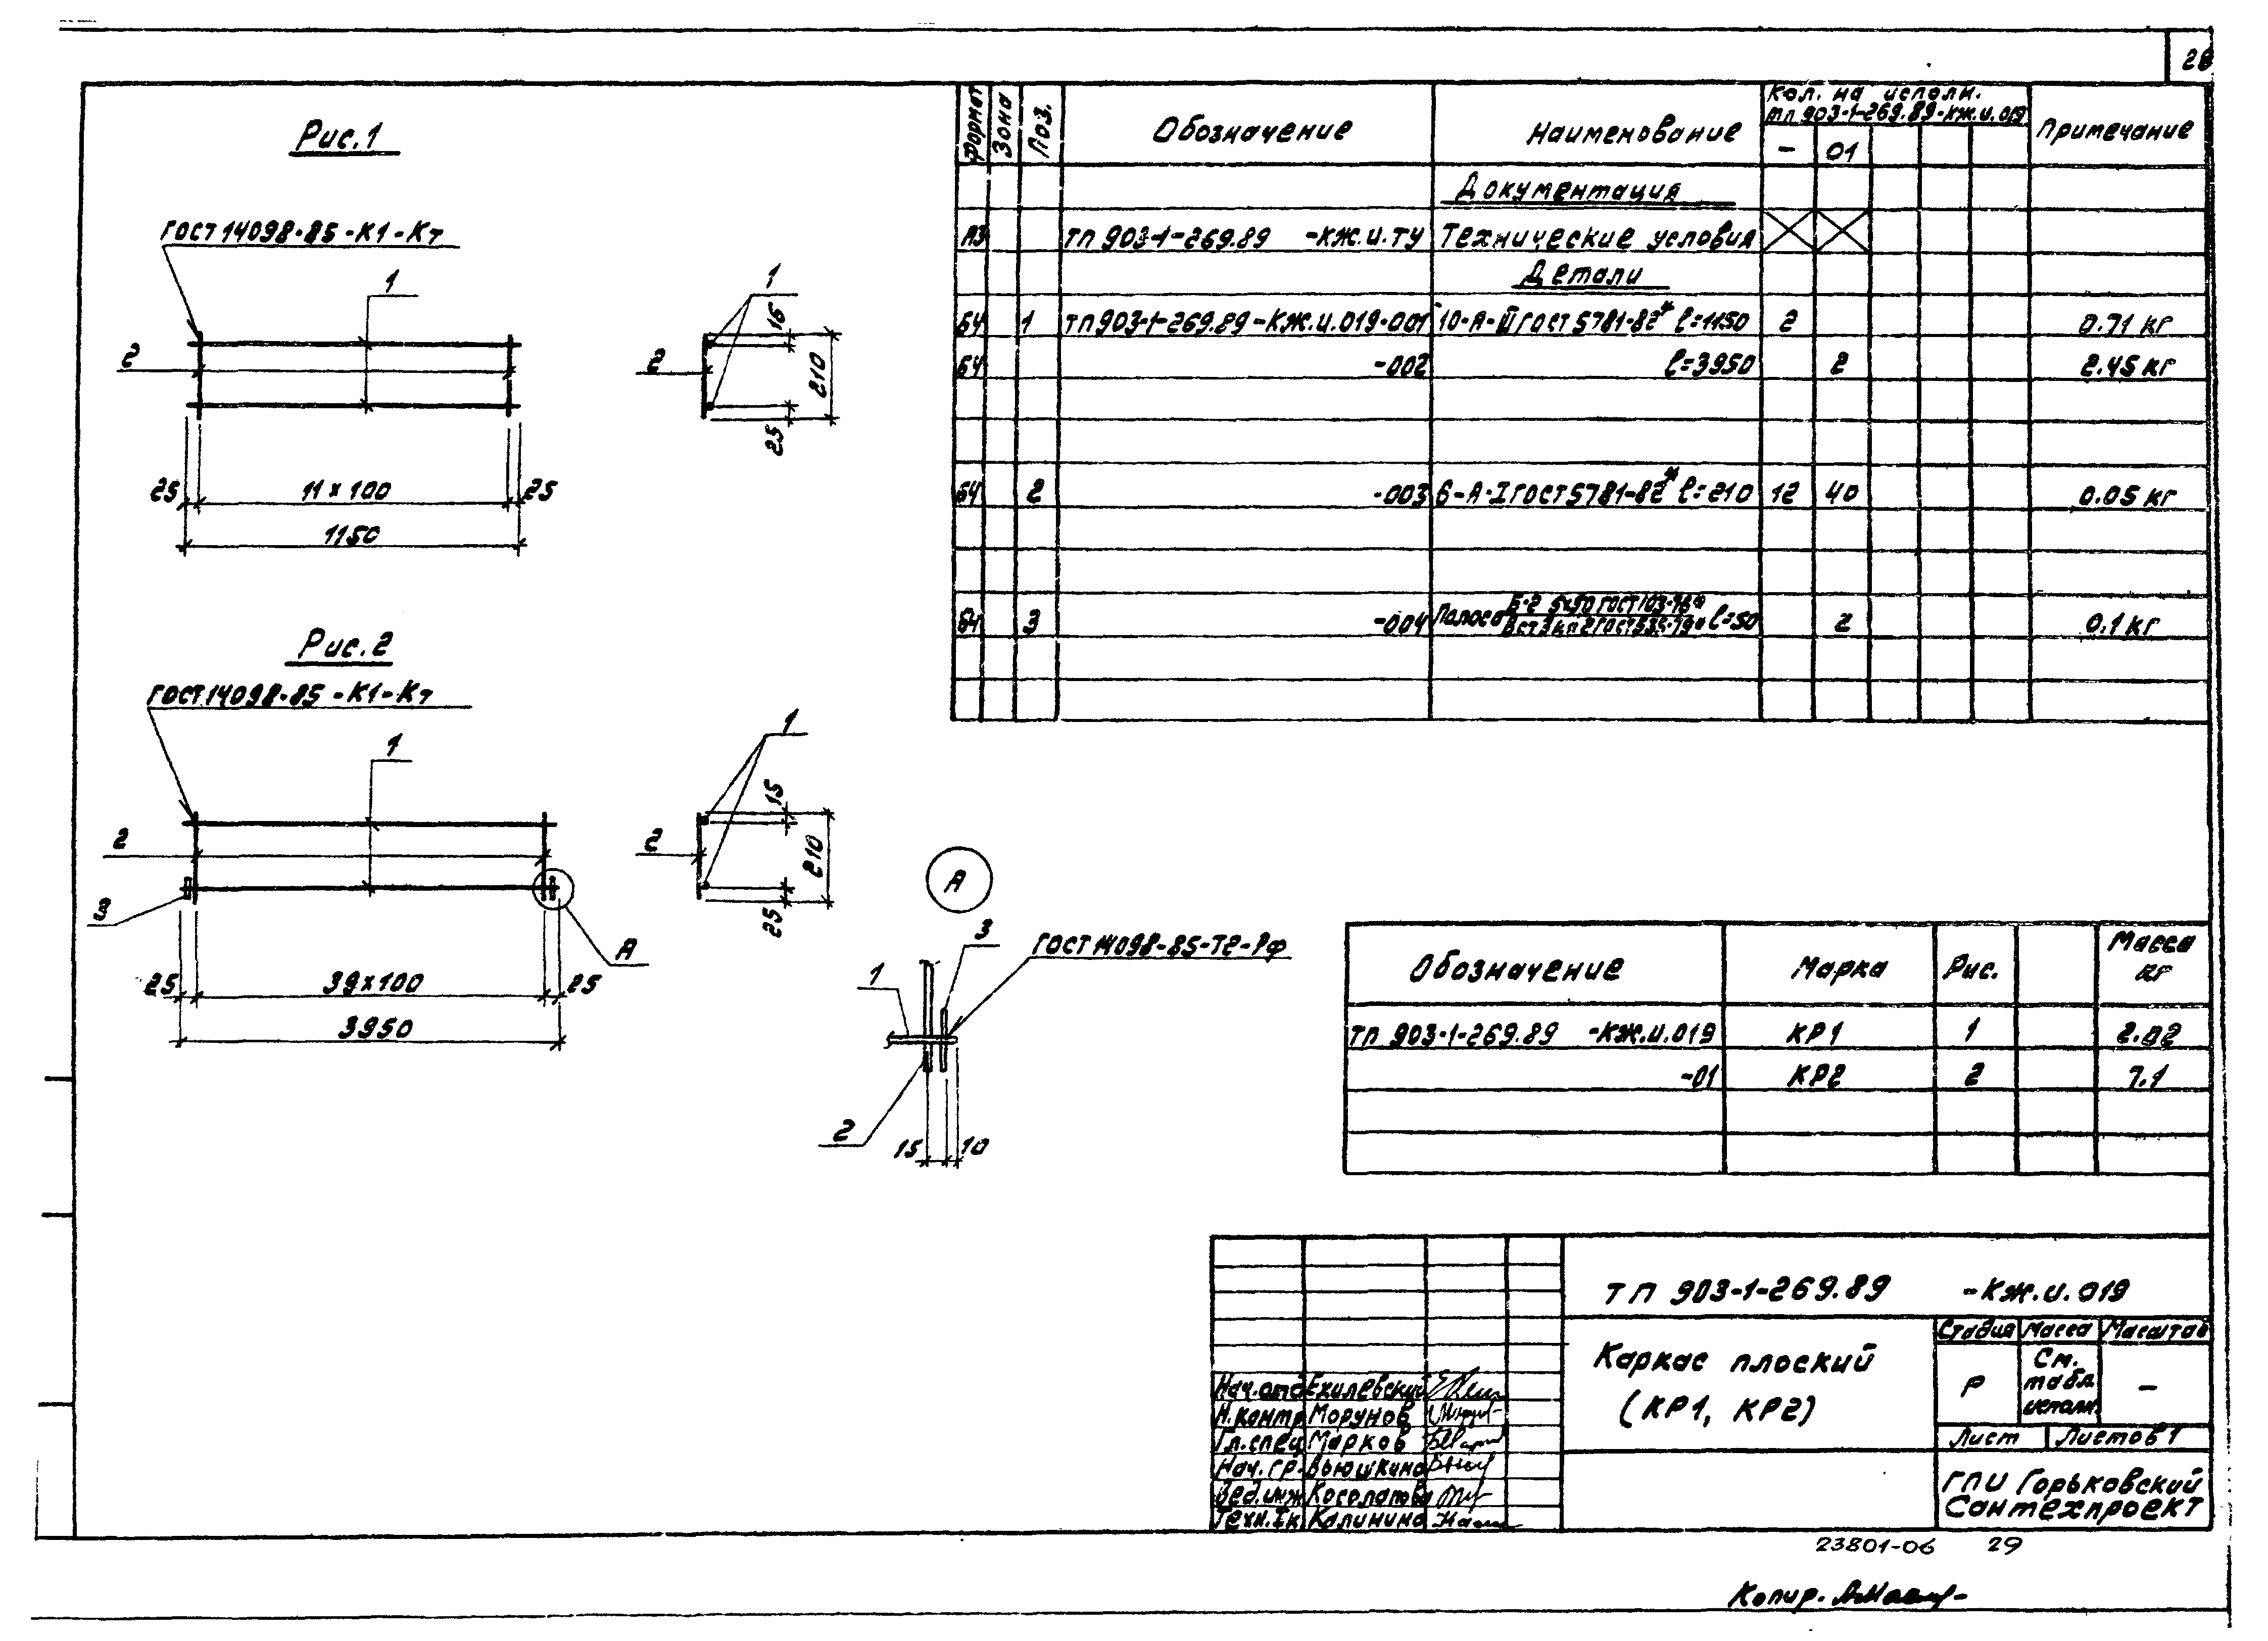 28
Рис.1
ГОСТ 14098-85-К1-Кт
1
2
25 11×100 25
1150
1
2
15
210
25
Рис.2
ГОСТ 14098-85-К1-Кт
1
2
3
А
25 39×100 25
3950
1
2
15
210
25
А
3
ГОСТ 14098-85-Т2-Рф
1
2
15 10
Формат Зона Поз. Обозначение Наименование Кол. на исполн. Примечание
тп 903-1-269.89-КЖ.И.019
- 01
Документация
А3 тп 903-1-269.89 -КЖ.И.ТУ Технические условия
Детали
БЧ 1 тп 903-1-269.89-КЖ.И.019-001 10-А-III ГОСТ 5781-82* ℓ=1150 2 0.71 кг
БЧ -002 ℓ=3950 2 2.45 кг
БЧ 2 -003 6-А-I ГОСТ 5781-82* ℓ=210 12 40 0.05 кг
БЧ 3 -004 Полоса Б-2 5×50 ГОСТ 103-76*
ВСт3кп2 ГОСТ 535-79* ℓ=50 2 0.1 кг
Обозначение Марка Рис. Масса кг
тп 903-1-269.89 -КЖ.И.019 КР1 1 2.02
-01 КР2 2 7.1
тп 903-1-269.89 -КЖ.И.019
Каркас плоский
(КР1, КР2)
Стадия Масса Масштаб
Р См. табл. исполн. -
Лист Листов 1
ГПИ Горьковский
Сантехпроект
Нач.отд Ехилевский
Н.контр Морунов
Гл.спец Марков
Нач.гр. Вьюшкина
Вед.инж Косолапова
Техн.Iк Калинина
23801-06 29
Копир.